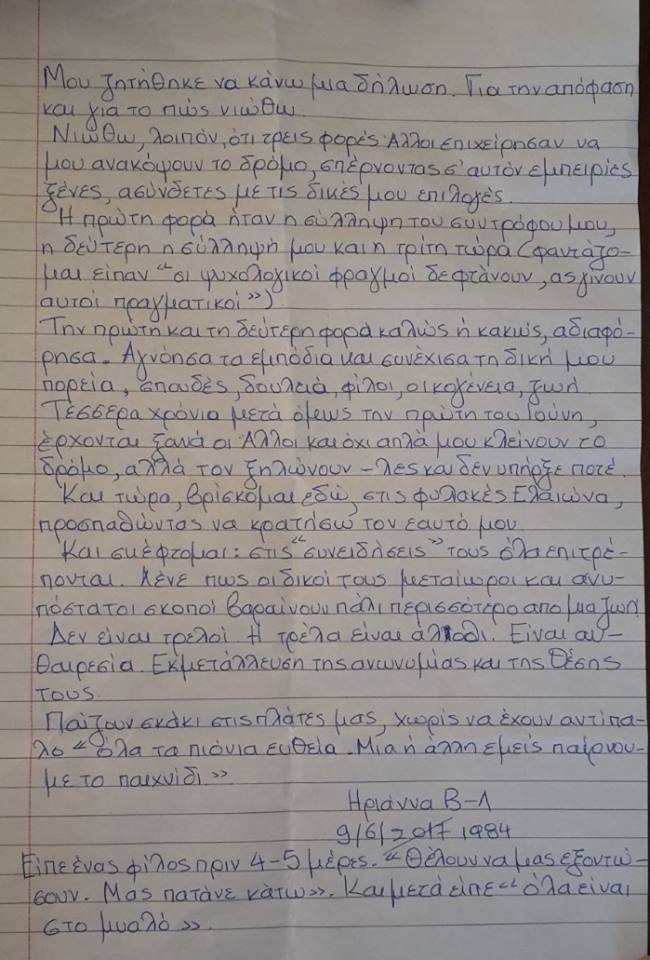 Μου ζητήθηκε να κάνω μια δήλωση. Για την απόφαση
και για το πώς νιώθω.
Νιώθω, λοιπόν, ότι τρεις φορές Άλλοι επιχείρησαν να
μου ανακόψουν το δρόμο, σπέρνοντας σ' αυτόν εμπειρίες
ξένες, ασύνδετες με τις δικές μου επιλογές.
Η πρώτη φορά ήταν η σύλληψη του συντρόφου μου,
η δεύτερη η σύλληψή μου και η τρίτη τώρα (φαντάζο-
μαι είπαν "οι ψυχολογικοί φραγμοί δε φτάνουν, ας γίνουν
αυτοί πραγματικοί»)
Την πρώτη και τη δεύτερη φορά καλώς ή κακώς, αδιαφό-
ρησα. Αγνόησα τα εμπόδια και συνέχισα τη δική μου
πορεία, σπουδές, δουλειά, φίλοι, οικογένεια, ζωή.
Τέσσερα χρόνια μετά όμως την πρώτη του Ιούνη,
έρχονται ξανά οι Άλλοι και όχι απλά μου κλείνουν το
δρόμο, αλλά τον ξηλώνουν - λες και δεν υπήρξε ποτέ.
Και τώρα, βρίσκομαι εδώ, στις φυλακές Ελαιώνα,
προσπαθώντας να κρατήσω τον εαυτό μου.
Και σκέφτομαι: στις "συνειδήσεις" τους όλα επιτρέ-
πονται. Λένε πως οι δικοί τους μεταίωροι και ανυ-
πόστατοι σκοποί βαραίνουν πάλι περισσότερο απο μια ζωή
Δεν είναι τρελοί. Η τρέλα είναι αλλού. Είναι αυ-
θαιρεσία. Εκμετάλλευση της ανωνυμίας και της θέσης
τους.
Παίζουν σκάκι στις πλάτες μας, χωρίς να έχουν αντίπα-
λο «όλα τα πιόνια ευθεία. Μια ή άλλη εμείς παίρνου-
με το παιχνίδι»
Ηριάννα Β-Λ
9/6/2017 1984
Είπε ένας φίλος πριν 4-5 μέρες. «Θέλουν να μας εξοντώ-
σουν. Μας πατάνε κάτω». Και μετά είπε «όλα είναι
στο μυαλό».